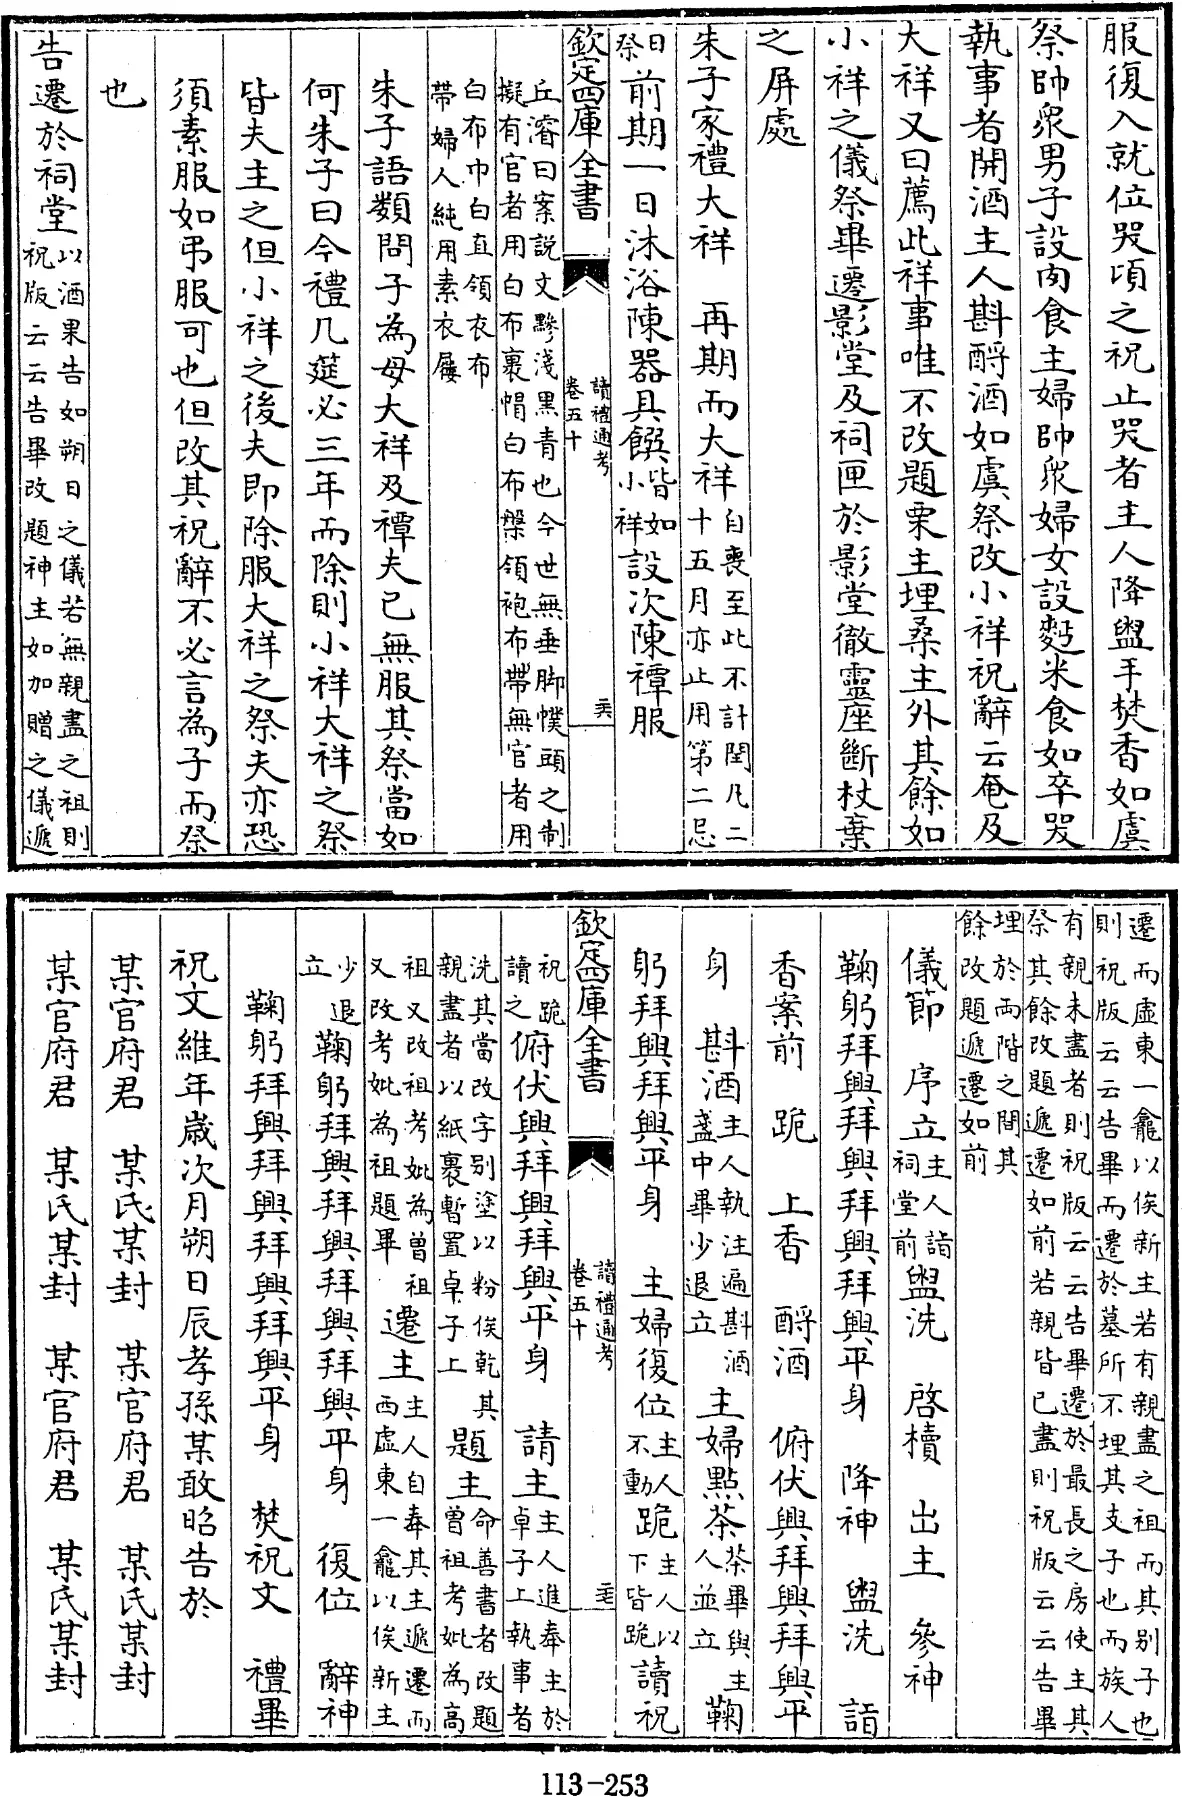 服復入就位哭頃之祝止哭者主人降盥手焚香如虞
祭帥衆男子設肉食主婦帥衆婦女設麪米食如卒哭
執事者開酒主人斟酹酒如虞祭改小祥祝辭云奄及
大祥又曰薦此祥事唯不改題栗主埋桑主外其餘如
小祥之儀祭畢遷影堂及祠匣於影堂徹靈座斷杖棄
之屏處
朱子家禮大祥　再期而大祥自喪至此不計閏凡二
十五月亦止用第二忌
日
祭前期一日沐浴陳器具饌皆如
小祥設次陳禫服
欽定四庫全書
讀禮通考
卷五十
丘濬曰案説文黲淺黑青也今世無垂脚幞頭之制
擬有官者用白布裹帽白布槃領袍布帶無官者用
白布巾白直領衣布
帶婦人純用素衣屨
朱子語類問子為母大祥及禫夫已無服其祭當如
何朱子曰今禮几筵必三年而除則小祥大祥之祭
皆夫主之但小祥之後夫即除服大祥之祭夫亦恐
須素服如弔服可也但改其祝辭不必言為子而祭
也
告遷於祠堂以酒果告如朔日之儀若無親盡之祖則
祝版云云告畢改題神主如加贈之儀遞
遷而虛東一龕以俟新主若有親盡之祖而其别子也
則祝版云云告畢而遷於墓所不埋其支子也而族人
有親未盡者則祝版云云告畢遷於最長之房使主其
祭其餘改題遞遷如前若親皆已盡則祝版云云告畢
埋於兩階之間其
餘改題遞遷如前
儀節　序立主人詣
祠堂前盥洗　啓櫝　出主　參神
鞠躬拜興拜興拜興拜興平身　降神　盥洗　詣
香案前　跪　上香　酹酒　俯伏興拜興拜興平
身　斟酒主人執注遍斟酒
盞中畢少退立主婦點茶茶畢與主
人並立鞠
躬拜興拜興平身　主婦復位主人
不動跪主人以
下皆跪讀祝
欽定四庫全書
讀禮通考
卷五十
祝跪
讀之俯伏興拜興拜興平身　請主主人進奉主於
卓子上執事者
洗其當改字别塗以粉俟乾其
親盡者以紙裹暫置卓子上題主命善書者改題
曾祖考妣為高
祖又改祖考妣為曾祖
又改考妣為祖題畢遷主主人自奉其主遞遷而
西虛東一龕以俟新主
少退
立鞠躬拜興拜興拜興拜興平身　復位　辭神
鞠躬拜興拜興拜興拜興平身　焚祝文　禮畢
祝文維年歲次月朔日辰孝孫某敢昭告於
某官府君　某氏某封　某官府君　某氏某封
某官府君　某氏某封　某官府君　某氏某封
113-253